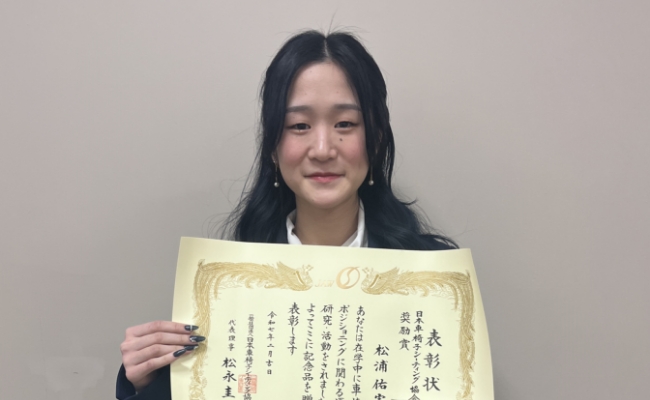 表彰状
日本車椅子シーティング協会
奨励賞
松浦佑
あなたは在学中に車
ポジショニングに関わる
研究・活動をされまし
よってここに記念品を贈
表彰します
令和七年二月吉日
日本車椅子シーティング協
代表理事 松永圭